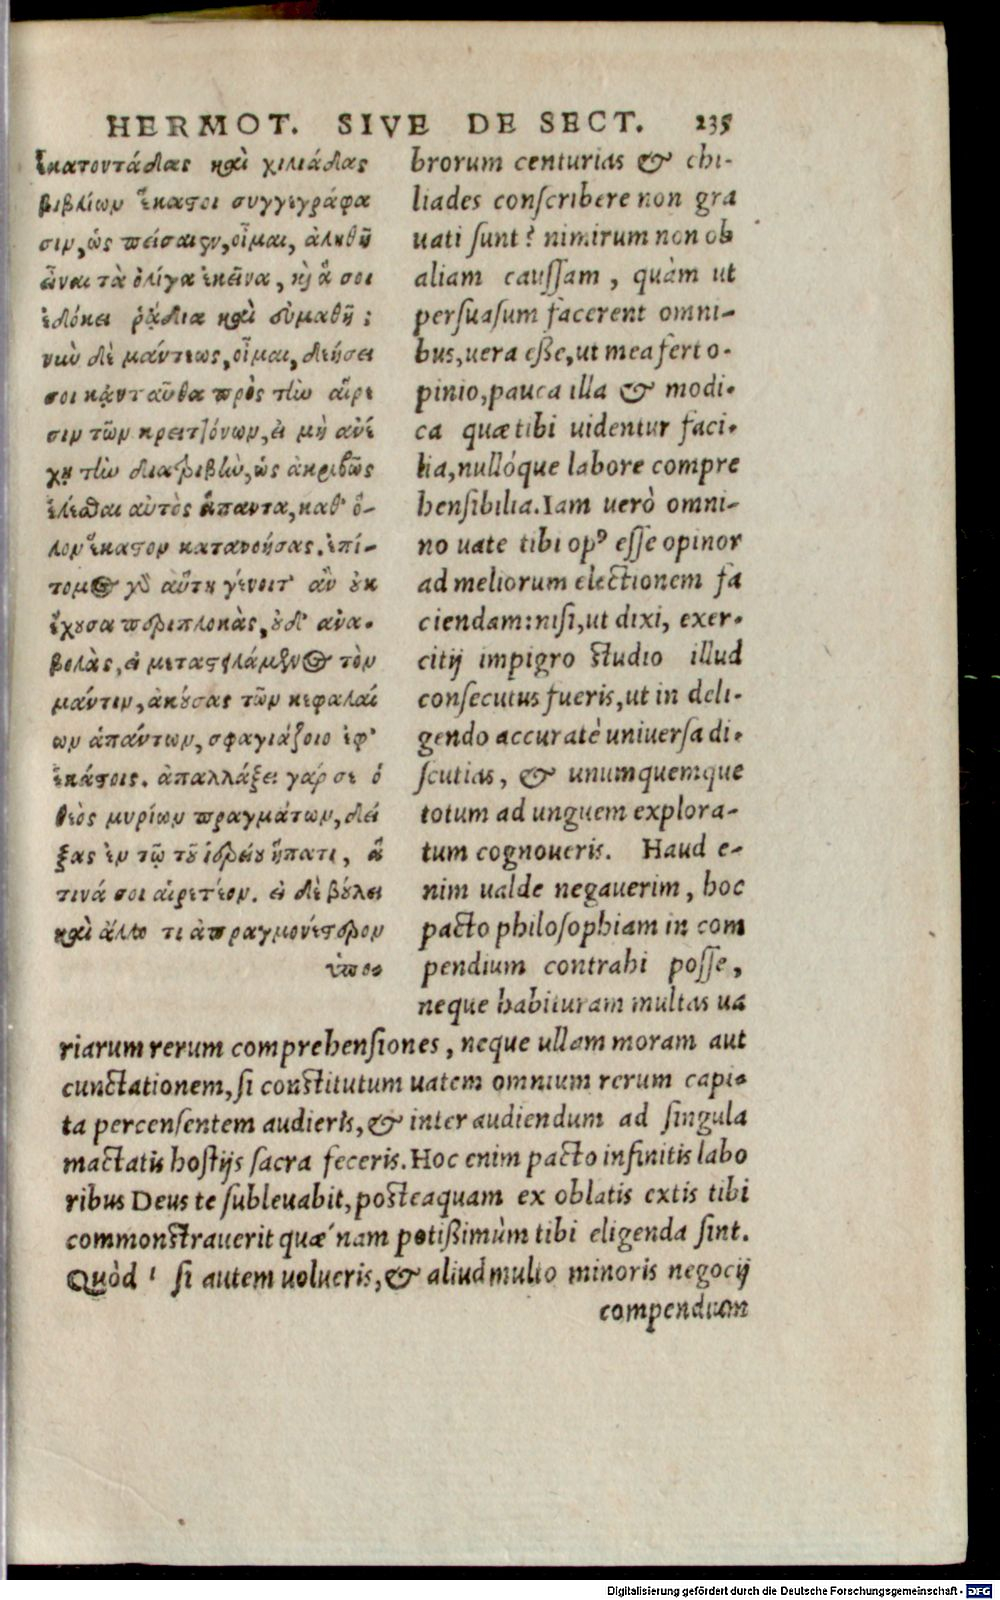 HERMOT. SIVE DE SECT. 235
ἑκατοντάδας καὶ χιλιάδας
βιβλίων ἕκαστοι συγγεγράφα
σιν, ὡς πείσαιεν, οἶμαι, ἀληθῆ
εἶναι τὰ ὀλίγα ἐκεῖνα, καὶ ἅ σοι
ἐδόκει ῥᾴδια καὶ εὐμαθῆ;
νῦν δὲ μάντεως, οἶμαι, δεήσει
σοι κᾀνταῦθα πρὸς τὴν αἵρε
σιν τῶν κρειττόνων, εἰ μὴ ἀνέ
χῃ τὴν διατριβὴν, ὡς ἀκριβῶς
ἑλέσθαι αὐτὸς ἅπαντα, καθ' ὅ-
λον ἕκαστον κατανοήσας. ἐπί-
τομος γὰρ αὕτη γένοιτ' ἂν οὐκ
ἔχουσα περιπλοκὰς, οὐδ' ἀνα-
βολὰς, εἰ μεταστειλάμενος τὸν
μάντιν, ἀκούσας τῶν κεφαλαί
ων ἁπάντων, σφαγιάζοιο ἐφ'
ἑκάστοις. ἀπαλλάξει γάρ σε ὁ
θεὸς μυρίων πραγμάτων, δεί
ξας ἐν τῷ τοῦ ἱερείου ἥπατι, ἅ
τινά σοι αἱρετέον. εἰ δὲ βούλει
καὶ ἄλλο τι ἀπραγμονέστερον
ὑπο-
brorum centurias & chi-
liades conscribere non gra
uati sunt? nimirum non ob
aliam caussam, quàm ut
persuasum facerent omni-
bus, uera esse, ut mea fert o-
pinio, pauca illa & modi-
ca quæ tibi uidentur faci-
lia, nullóque labore compre
hensibilia. Iam uerò omni-
no uate tibi op⁹ esse opinor
ad meliorum electionem fa
ciendam: nisi, ut dixi, exer-
citij impigro studio illud
consecutus fueris, ut in deli-
gendo accuratè uniuersa di-
scutias, & unumquemque
totum ad unguem explora-
tum cognoueris. Haud e-
nim ualde negauerim, hoc
pacto philosophiam in com
pendium contrahi posse,
neque habituram multas ua
riarum rerum comprehensiones, neque ullam moram aut
cunctationem, si constitutum uatem omnium rerum capi-
ta percensentem audieris, & inter audiendum ad singula
mactatis hostijs sacra feceris. Hoc enim pacto infinitis labo
ribus Deus te subleuabit, posteaquam ex oblatis extis tibi
commonstrauerit quæ'nam potissimùm tibi eligenda sint.
Quòd ' si autem uolueris, & aliud multo minoris negocij
compendium
Digitalisierung gefördert durch die Deutsche Forschungsgemeinschaft - DFG